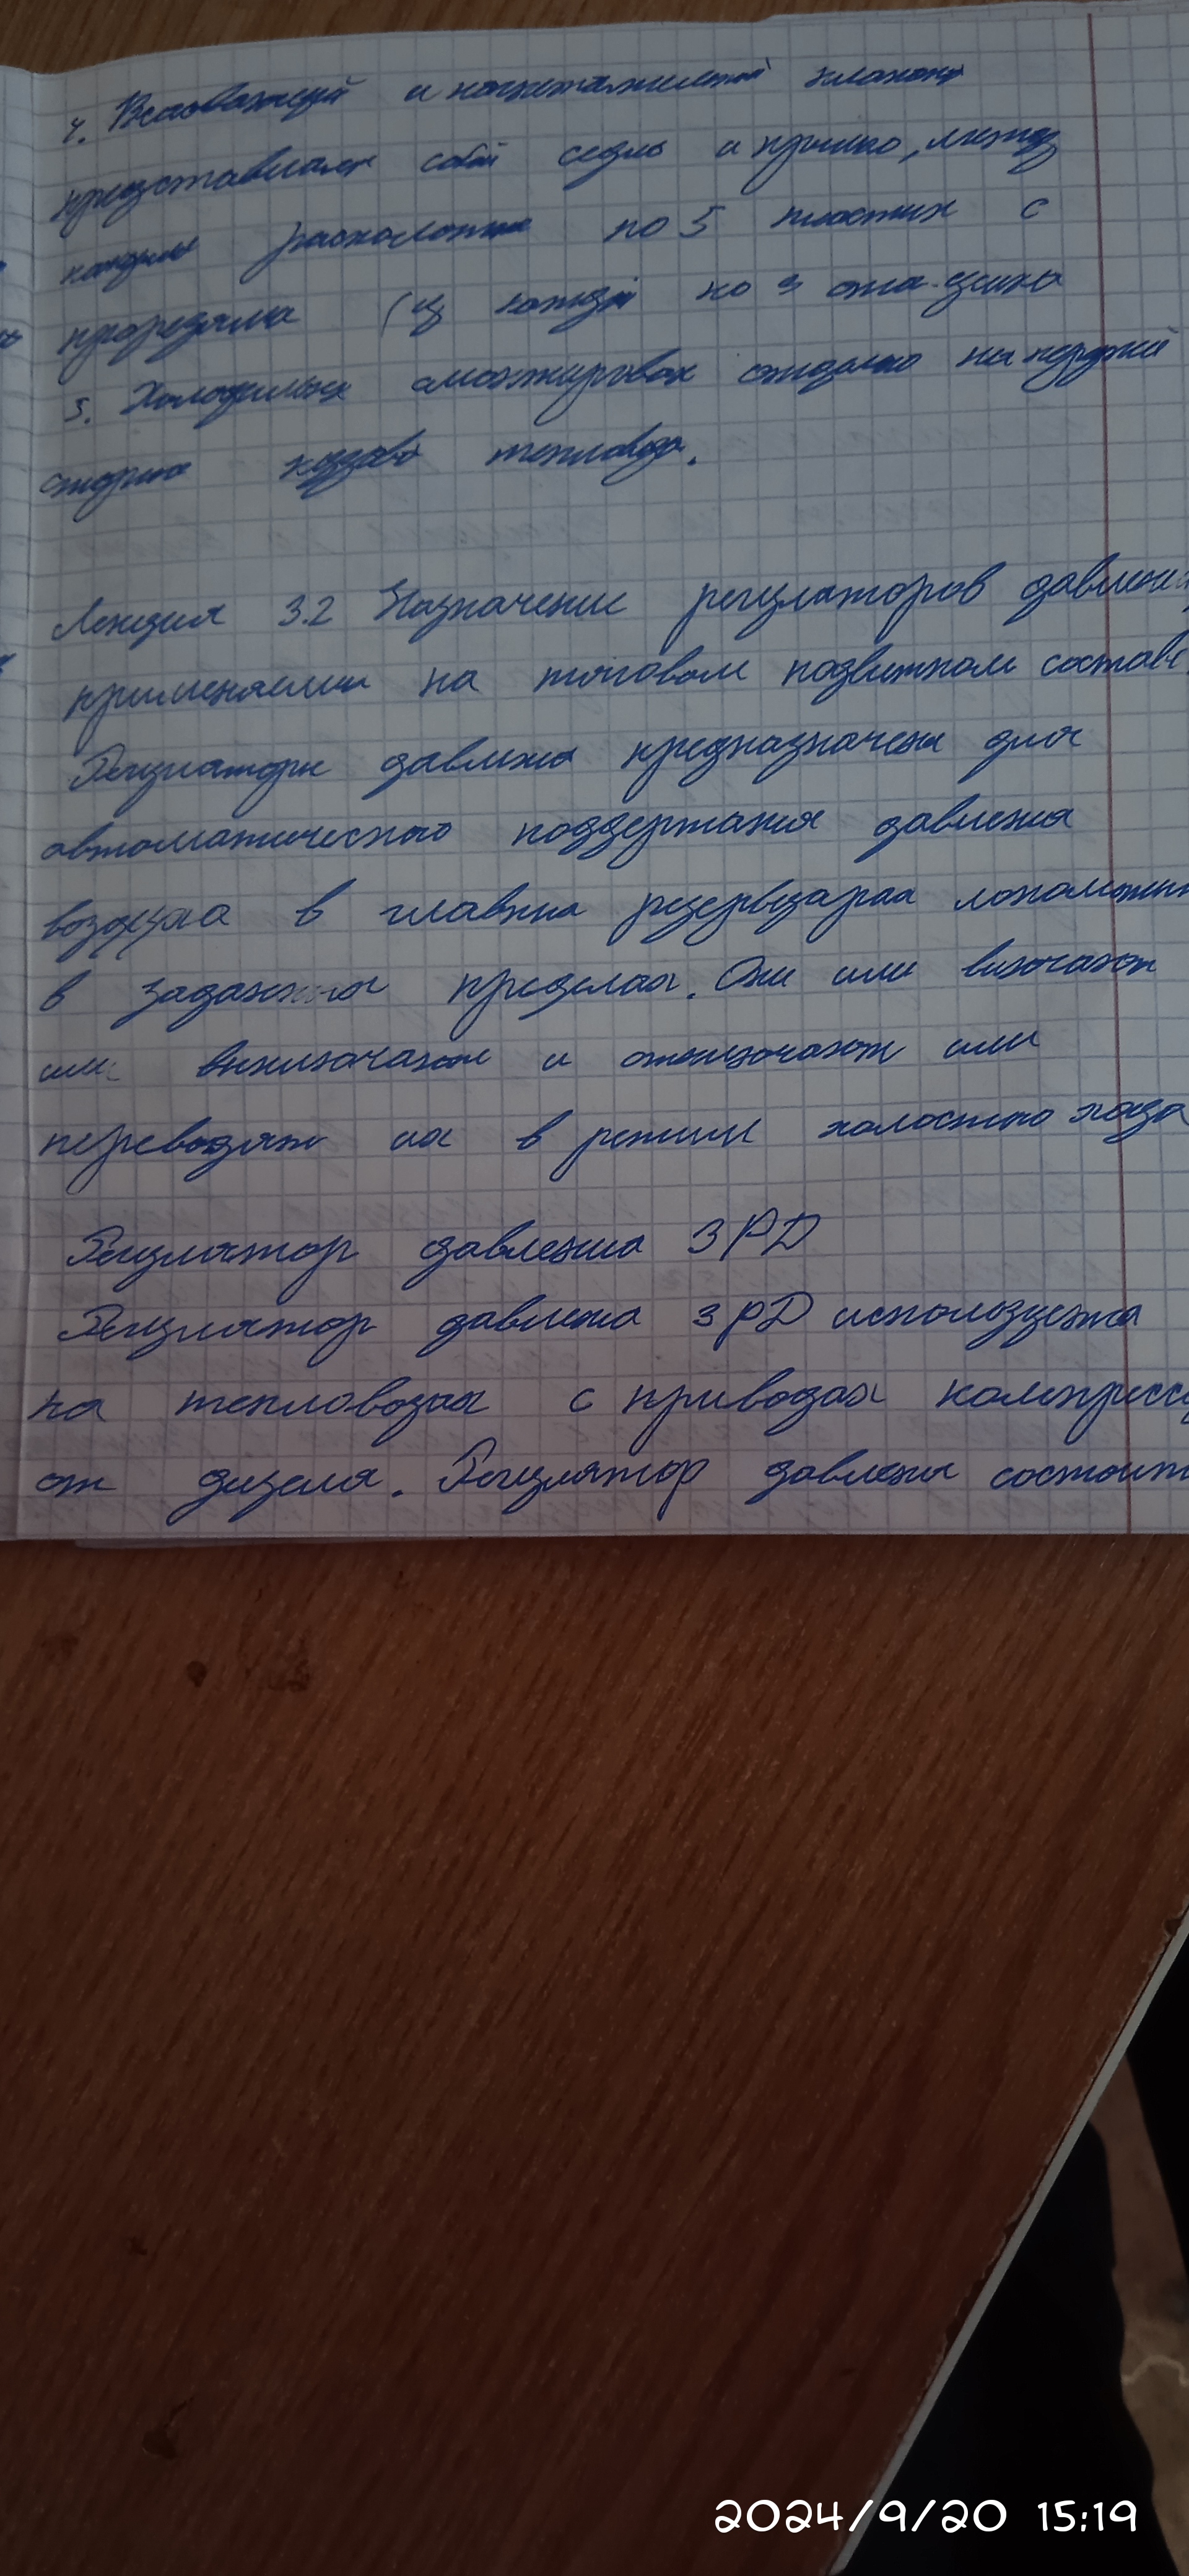 4. Всасывающий и нагнетательный клапаны
представляют собой седло и , между
которыми расположены по 5 пластин с
(у каждой по 3
5. Холодильник смонтирован отдельно на передней
стороне кузова тепловоза.
Лекция 3.2 Назначение регуляторов давлени
применяемых на тяговом подвижном составе.
Регуляторы давления предназначены для
автоматического поддержания давления
воздуха в главных резервуарах
в заданных пределах. Они или включают
или выключают и отключают или
переводят их в режим холостого хода
Регулятор давления 3РД
Регулятор давления 3РД используется
на тепловозах с приводах компрессо
от дизеля. Регулятор давления состоит
2024/9/20 15:19